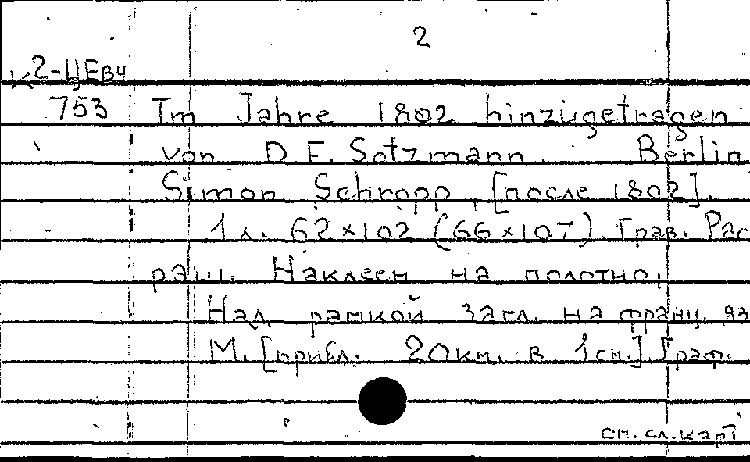 2
K2-ЦЕвч
753 Im Jahre 1802 hinzugetragen
von D.F. Sotzmann. Berlin
Simon Schropp, [после 1802].
1 л. 62×102 (66×107) Грав. Рас
раш. Наклеен на полотно.
Над рамкой загл. на франц. яз
М. [прибл. 20км. в 1см.] Граф.
см. сл. карт